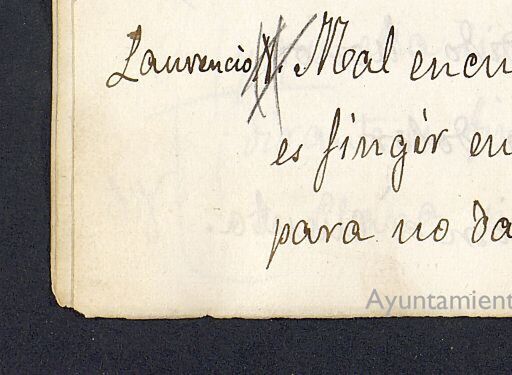 Laurencio Mal encu
es fingir en
para no da
Ayuntamient